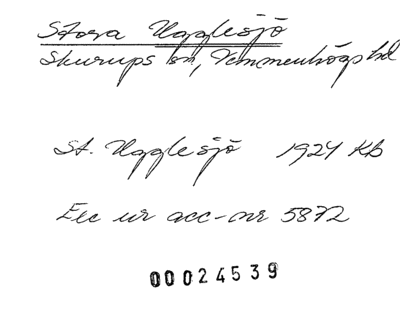 Stora Ugglesjö
Skurups sn, Vemmenhögs hd
St. Ugglesjö 1924 KB
Exc ur acc-nr 5872
00024539